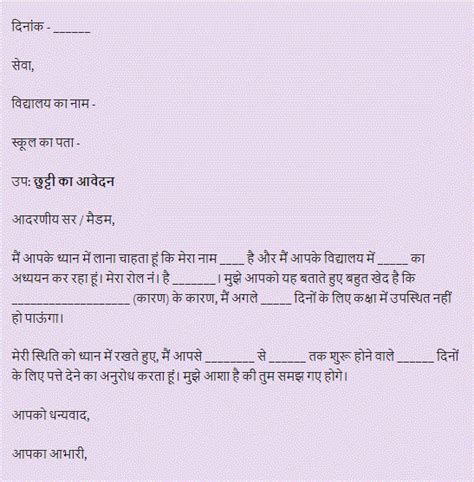 दिनांक - ______
सेवा,
विद्यालय का नाम -
स्कूल का पता -
उप: छुट्टी का आवेदन
आदरणीय सर / मैडम,
मैं आपके ध्यान में लाना चाहता हूं कि मेरा नाम ____ है और मैं आपके विद्यालय में _____ का
अध्ययन कर रहा हूं। मेरा रोल नं। है _______। मुझे आपको यह बताते हुए बहुत खेद है कि
___________________ (कारण) के कारण, मैं अगले _____ दिनों के लिए कक्षा में उपस्थित नहीं
हो पाऊंगा।
मेरी स्थिति को ध्यान में रखते हुए, मैं आपसे ________ से ______ तक शुरू होने वाले ______ दिनों
के लिए पत्ते देने का अनुरोध करता हूं। मुझे आशा है की तुम समझ गए होगे।
आपको धन्यवाद,
आपका आभारी,